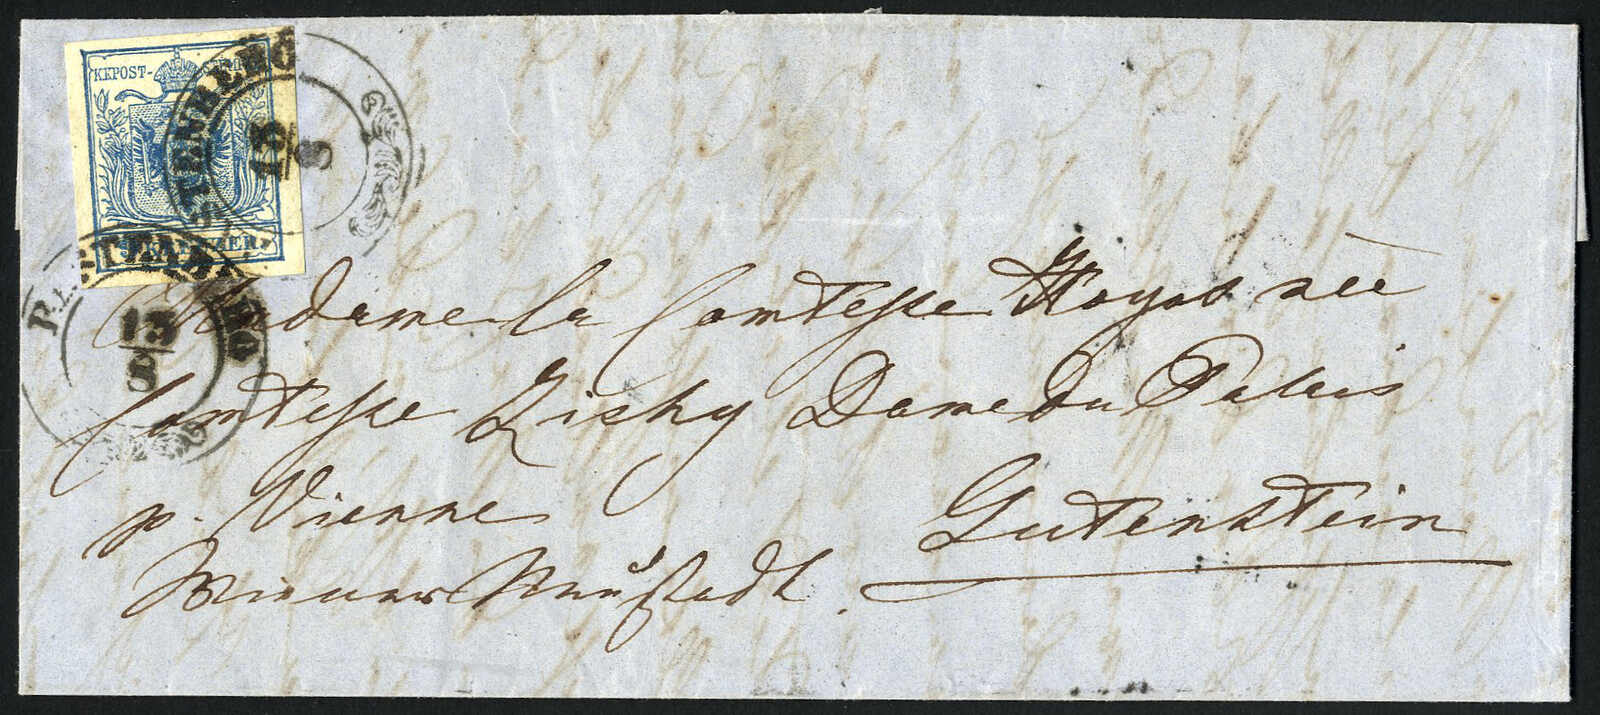 KKPOST-
TENBERG
13
8
KREUZER.
TTENBERG
13
8
Madame la Comtesse Hoyos née
Comtesse Zichy Dame du Palais
p. Vienne
Gutenstein
Wiener Neustadt.